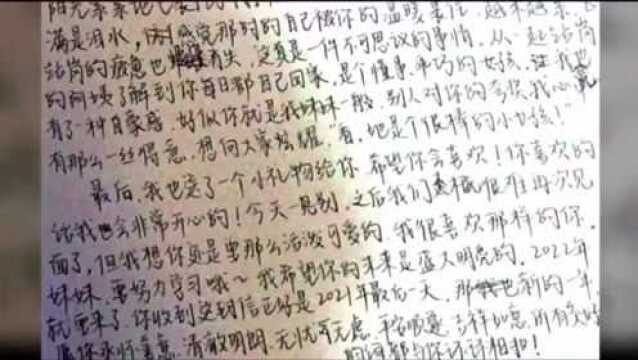 满是泪水,感觉那时的自己被你的温暖
站岗的疲惫也消失,这真是一件不可思议的事情,从一起站岗
的阿姨了解到你每日都自己回家,是个懂事、乖巧的女孩,让我也
有了一种自豪感,好似你就是我妹妹一般,别人对你的夸赞,我心里
有那么一丝得意,想向大家炫耀,"看,她是个很棒的小女孩!"
最后,我也送了一个小礼物给你,希望你会喜欢!你喜欢的
话我也会非常开心的!今天一见别,之后我们很难再次见
面了,但我想你总是要那么活泼可爱的,我很喜欢那样的你,
妹妹,要努力学习哦~我希望你的未来是盛大明亮的,2022年
就要来了,你收到这封信正好是2021年最后一天,那新的一年,
愿你永怀善意,清澈明朗,无忧无虑,平安顺遂,吉祥如意,所有美好
都与你环环相扣!